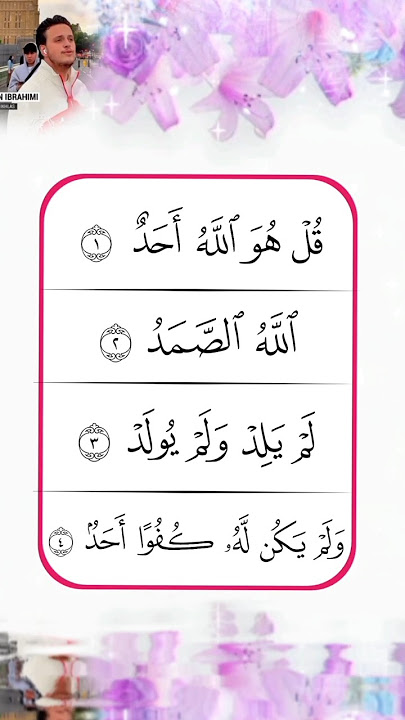 N IBRAHIMI
قُلْ هُوَ ٱللَّهُ أَحَدٌ ١
ٱللَّهُ ٱلصَّمَدُ ٢
لَمْ يَلِدْ وَلَمْ يُولَدْ ٣
وَلَمْ يَكُن لَّهُۥ كُفُوًا أَحَدٌۢ ٤